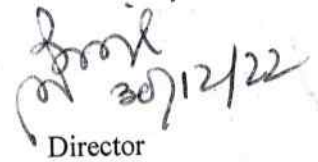 30/12/22
Director